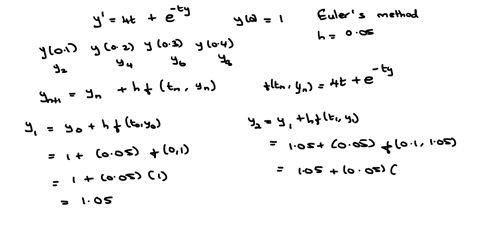 y' = 4t + e^{-ty} y(0) = 1 Euler's method
h = 0.05
y(0.1) y(0.2) y(0.3) y(0.4)
y_2 y_4 y_6 y_8
y_{n+1} = y_n + h f(t_n, y_n) f(t_n, y_n) = 4t + e^{-ty}
y_1 = y_0 + h f(t_0, y_0)
= 1 + (0.05) f(0,1)
= 1 + (0.05) (1)
= 1.05
y_2 = y_1 + h f(t_1, y_1)
= 1.05 + (0.05) f(0.1, 1.05)
= 1.05 + (0.05) (